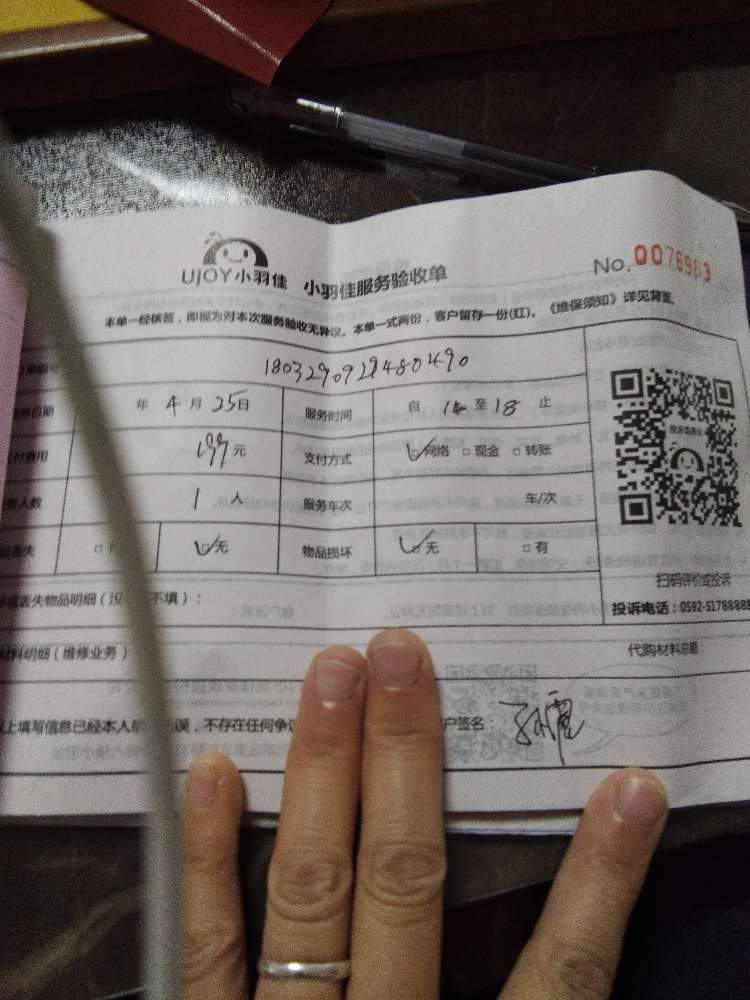 UJOY小羽佳 小羽佳服务验收单 No.0076983
本单一经核签，即视为对本次服务验收无异议。本单一式两份，客户留存一份(红)。《维保须知》详见背面
1803290929480490
日期 年 4 月 25日 服务时间 自 14 至 18 止
费用 199元 支付方式 网络 现金 转账
人数 1 人 服务车次 车/次
丢失 无 物品损坏 无 有
扫码评价或投诉
丢失物品明细 不填）：
投诉电话：0592-5178888
明细（维修业务） 代购材料总额
上填写信息已经本人 无误，不存在任何争 户签名：